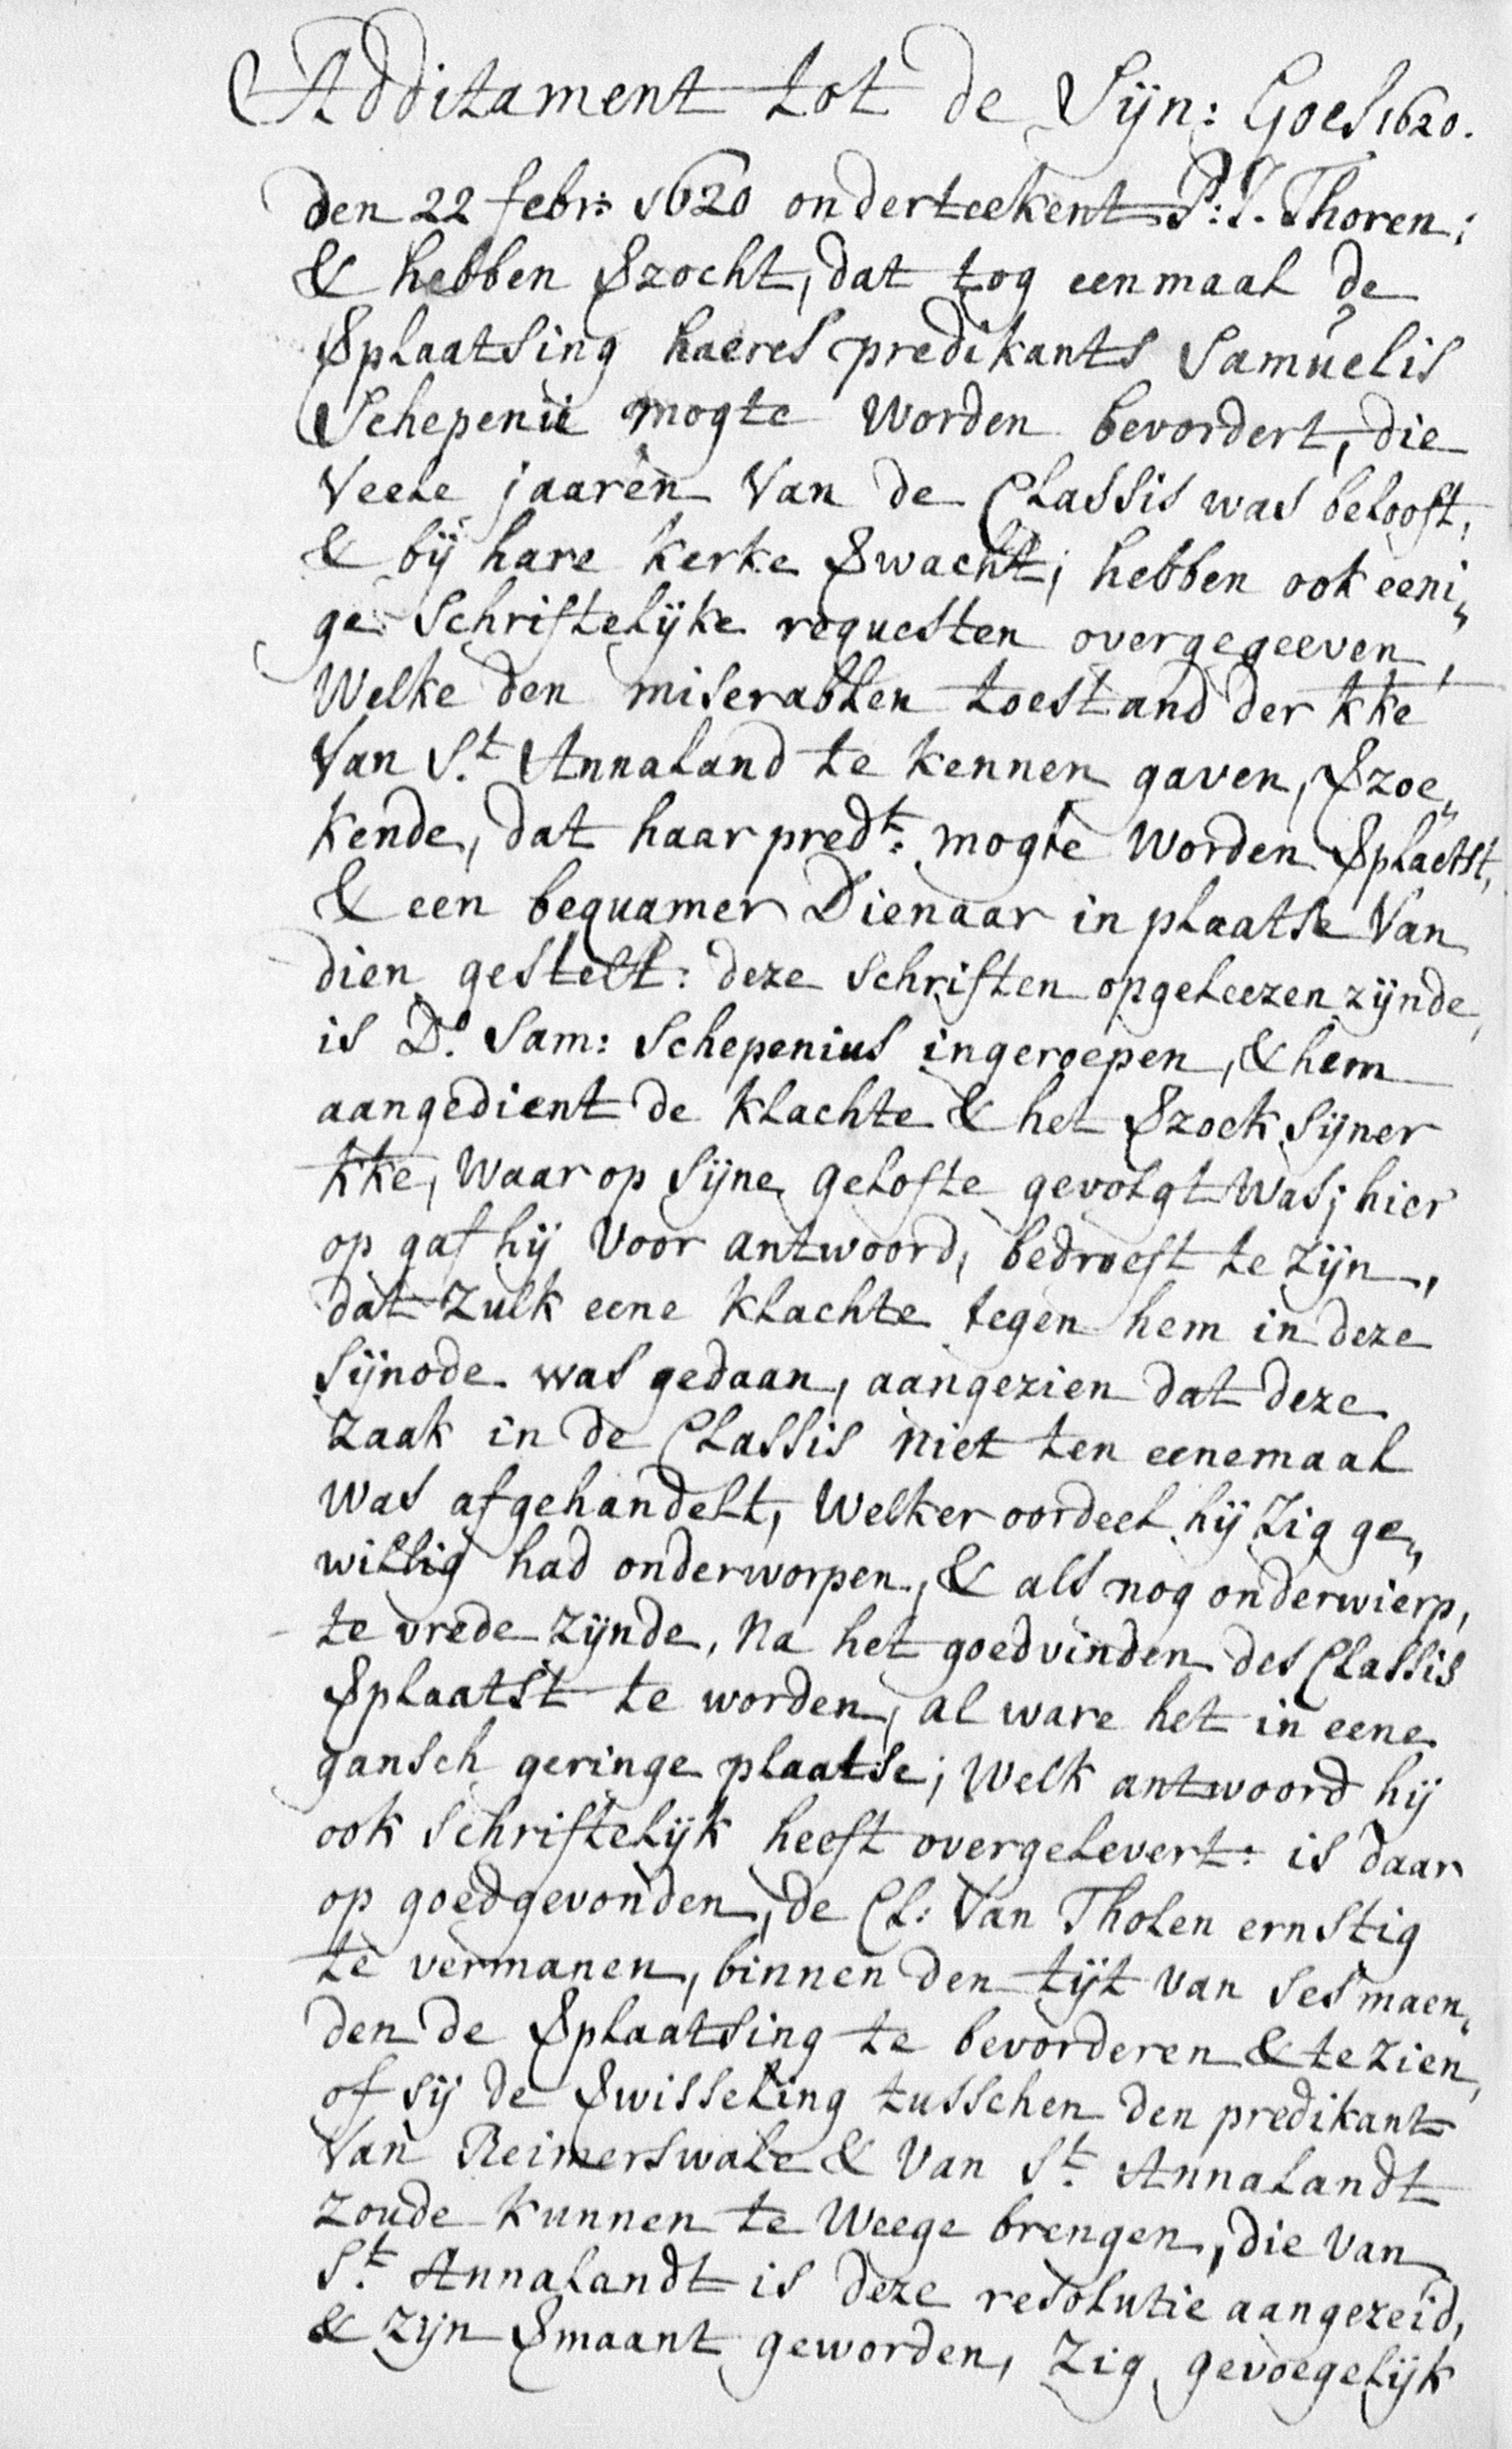 Additament tot de Sijn: Goes 1620.
den 22 febr: 1620 onderteekent P: I. Thoren:
& hebben ꝟzocht, dat tog eenmaal de
ꝟplaatsing haeres predikants Samuelis
Schepenii mogte worden bevordert, die
Veele jaaren Van de Classis was belooft,
& bij hare kerke ꝟwacht; hebben ook eeni„
ge schriftelijke requesten overgegeeven,
Welke den miserablen toestand der kke
Van St. Annaland te kennen gaven, ꝟzoe„
kende, dat haar predt: mogte worden ꝟplaetst,
& een bequamer Dienaar in plaatse Van
dien gestelt: deze schriften opgeleezen zijnde,
is Do. Sam: Schepenius ingeroepen, & hem
aangedient de klachte & het ꝟzoek sijner
kke, Waar op sijne gelofte gevolgt was; hier
op gaf hij Voor antwoord, bedroeft te zijn,
dat zulk eene klachte tegen hem in deze
Sijnode was gedaan, aangezien dat deze
zaak in de Classis niet ten eenemaal
was afgehandelt, Welker oordeel hij zig ge„
willig had onderworpen, & als nog onderwierp,
te vrede zijnde, na het goedvinden des Classis
ꝟplaatst te worden, al ware het in eene
gansch geringe plaatse; Welk antwoord hij
ook schriftelijk heeft overgelevert: is daar
op goedgevonden, de Cl: Van Tholen ernstig
te vermanen, binnen den tijt van ses maen„
den de ꝟplaatsing te bevorderen & te zien,
of sij de ꝟwisseling tusschen den predikant
Van Reimerswale & Van St. Annalandt
zoude kunnen te Weege brengen, die van
St. Annalandt is deze resolutie aangezeid,
& zijn ꝟmaant geworden, zig gevoegelijk